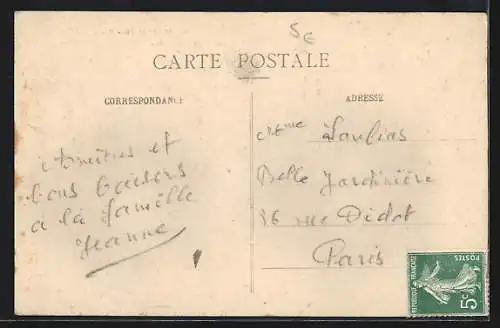 5€
CARTE POSTALE
CORRESPONDANCE
ADRESSE
Amitiés et
bons baisers
à la famille
Jeanne
Mme Laulias
Belle Jardinière
36 rue Didot
Paris
REPUBLIQUE FRANÇAISE
POSTES
5c